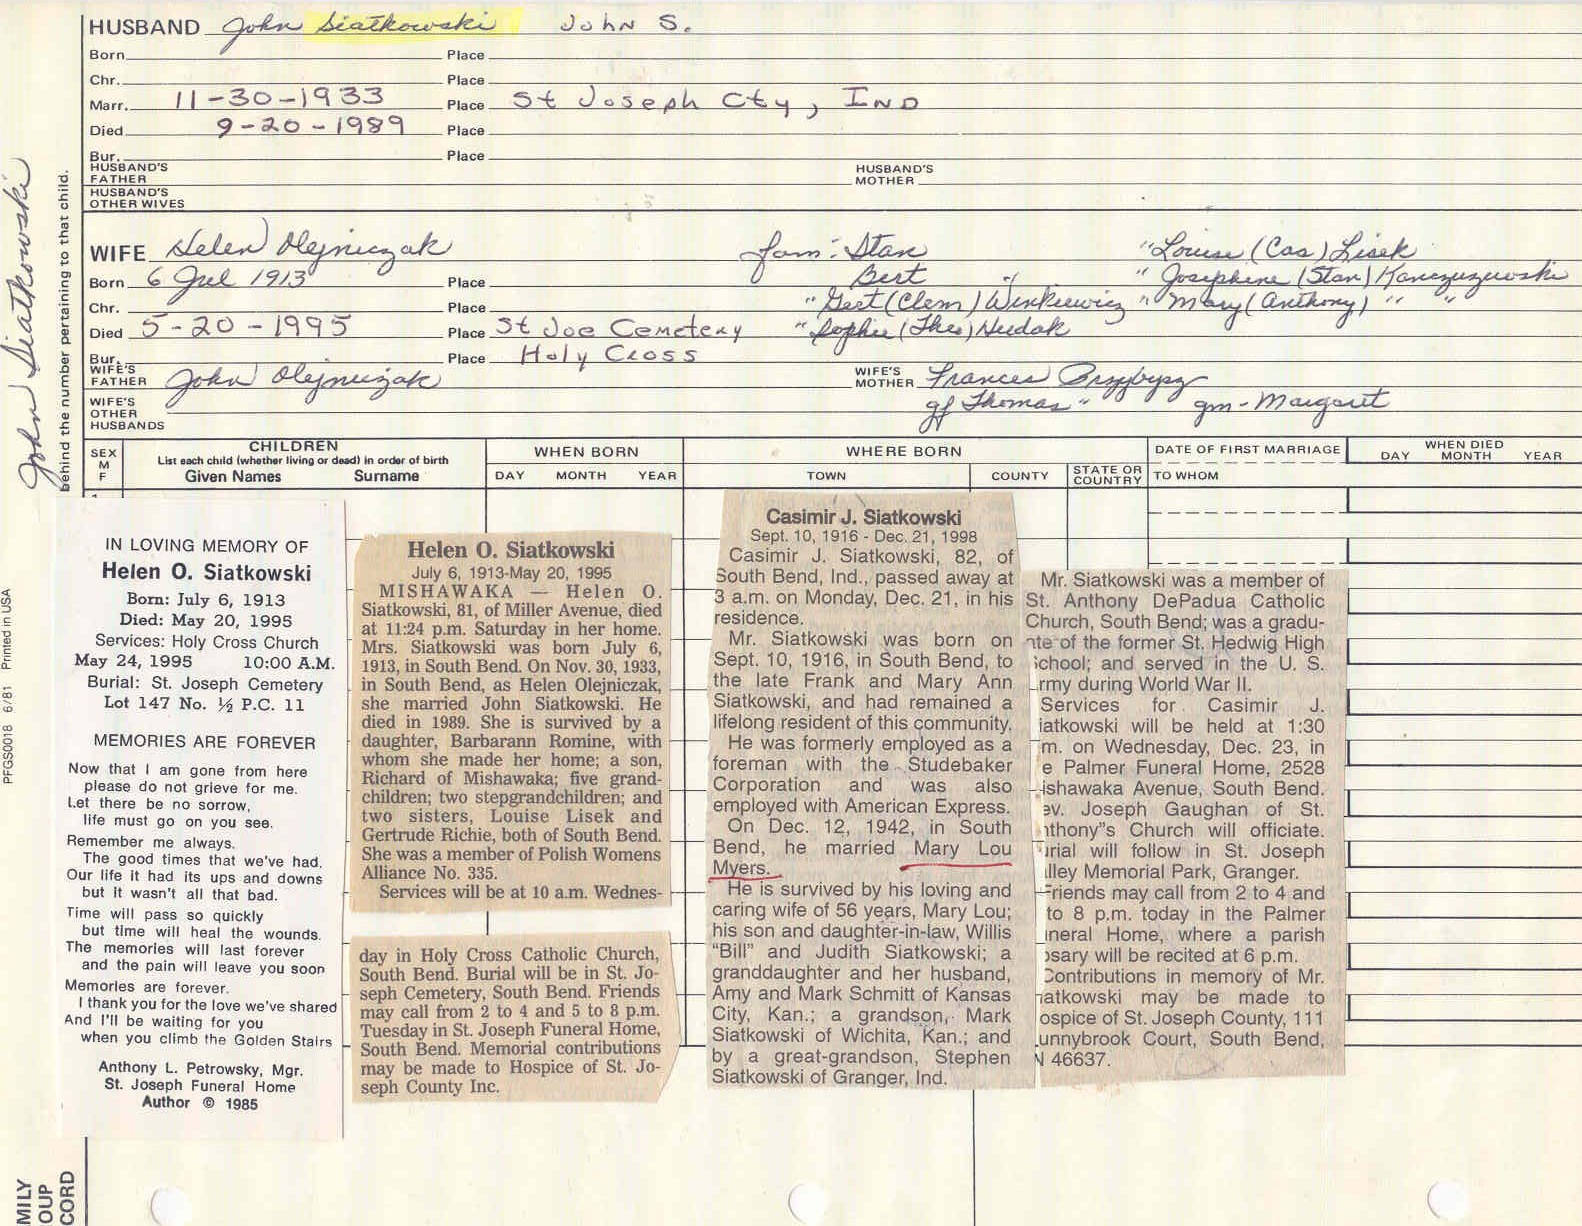 HUSBAND John Siatkowski John S.
Born Place
Chr. Place
Marr. 11-30-1933 Place St Joseph Cty, IND
Died 9-20-1989 Place
Bur. Place
HUSBAND'S FATHER HUSBAND'S MOTHER
HUSBAND'S OTHER WIVES
WIFE Helen Olejniczak fam: Stan "Louise (Cas) Lisek
Born 6 Jul 1913 Place Bert " " Josephine (Stan)
Chr. Place " Gert (Clem) Winkiewicz " Mary (Anthony) " "
Died 5-20-1995 Place St Joe Cemetery " Sophie (Thes) Hudak
Bur. Place Holy Cross
WIFE'S FATHER John Olejniczak WIFE'S MOTHER Frances Przybysz
WIFE'S OTHER HUSBANDS gf Thomas " gm - Margaret
SEX M F
CHILDREN
List each child (whether living or dead) in order of birth
Given Names Surname
WHEN BORN
DAY MONTH YEAR
WHERE BORN
TOWN COUNTY STATE OR COUNTRY
DATE OF FIRST MARRIAGE
TO WHOM
WHEN DIED
DAY MONTH YEAR
John Siatkowski
behind the number pertaining to that child.
PFGS0018 6/81 Printed in USA
MILY
OUP
CORD
IN LOVING MEMORY OF
Helen O. Siatkowski
Born: July 6, 1913
Died: May 20, 1995
Services: Holy Cross Church
May 24, 1995 10:00 A.M.
Burial: St. Joseph Cemetery
Lot 147 No. ½ P.C. 11
MEMORIES ARE FOREVER
Now that I am gone from here
please do not grieve for me.
Let there be no sorrow,
life must go on you see.
Remember me always.
The good times that we've had.
Our life it had its ups and downs
but it wasn't all that bad.
Time will pass so quickly
but time will heal the wounds.
The memories will last forever
and the pain will leave you soon
Memories are forever.
I thank you for the love we've shared
And I'll be waiting for you
when you climb the Golden Stairs
Anthony L. Petrowsky, Mgr.
St. Joseph Funeral Home
Author © 1985
Helen O. Siatkowski
July 6, 1913-May 20, 1995
MISHAWAKA — Helen O.
Siatkowski, 81, of Miller Avenue, died
at 11:24 p.m. Saturday in her home.
Mrs. Siatkowski was born July 6,
1913, in South Bend. On Nov. 30, 1933,
in South Bend, as Helen Olejniczak,
she married John Siatkowski. He
died in 1989. She is survived by a
daughter, Barbarann Romine, with
whom she made her home; a son,
Richard of Mishawaka; five grand-
children; two stepgrandchildren; and
two sisters, Louise Lisek and
Gertrude Richie, both of South Bend.
She was a member of Polish Womens
Alliance No. 335.
Services will be at 10 a.m. Wednes-
day in Holy Cross Catholic Church,
South Bend. Burial will be in St. Jo-
seph Cemetery, South Bend. Friends
may call from 2 to 4 and 5 to 8 p.m.
Tuesday in St. Joseph Funeral Home,
South Bend. Memorial contributions
may be made to Hospice of St. Jo-
seph County Inc.
Casimir J. Siatkowski
Sept. 10, 1916 - Dec. 21, 1998
Casimir J. Siatkowski, 82, of
South Bend, Ind., passed away at
3 a.m. on Monday, Dec. 21, in his
residence.
Mr. Siatkowski was born on
Sept. 10, 1916, in South Bend, to
the late Frank and Mary Ann
Siatkowski, and had remained a
lifelong resident of this community.
He was formerly employed as a
foreman with the Studebaker
Corporation and was also
employed with American Express.
On Dec. 12, 1942, in South
Bend, he married Mary Lou
Myers.
He is survived by his loving and
caring wife of 56 years, Mary Lou;
his son and daughter-in-law, Willis
"Bill" and Judith Siatkowski; a
granddaughter and her husband,
Amy and Mark Schmitt of Kansas
City, Kan.; a grandson, Mark
Siatkowski of Wichita, Kan.; and
by a great-grandson, Stephen
Siatkowski of Granger, Ind.
Mr. Siatkowski was a member of
St. Anthony DePadua Catholic
Church, South Bend; was a gradu-
ate of the former St. Hedwig High
School; and served in the U. S.
rmy during World War II.
Services for Casimir J.
iatkowski will be held at 1:30
m. on Wednesday, Dec. 23, in
e Palmer Funeral Home, 2528
ishawaka Avenue, South Bend.
ev. Joseph Gaughan of St.
nthony"s Church will officiate.
urial will follow in St. Joseph
lley Memorial Park, Granger.
Friends may call from 2 to 4 and
to 8 p.m. today in the Palmer
neral Home, where a parish
osary will be recited at 6 p.m.
Contributions in memory of Mr.
iatkowski may be made to
ospice of St. Joseph County, 111
unnybrook Court, South Bend,
N 46637.